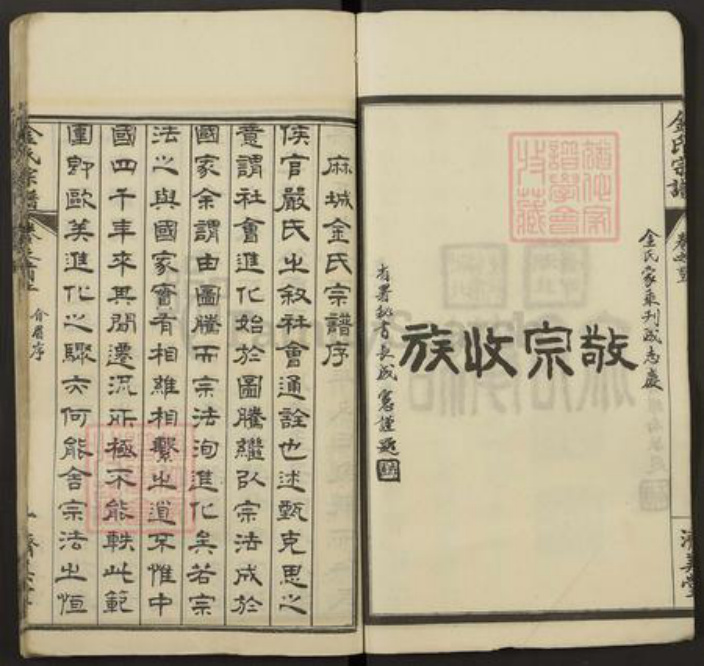 金氏宗譜
濟美堂
金氏家乘刊成志慶
敬宗收族
省署秘書長咸憲謹題
麻城金氏宗譜序
侯官嚴氏之叙社會通詮也述甄克思之
意謂社會進化始於圖騰繼以宗法成於
國家余謂由圖騰而宗法洵進化矣若宗
法之與國家實有相維相繫之道不惟中
國四千年來其間遷流所極不能軼此範
圍即歐美進化之驟亦何能舍宗法之恒
金氏宗譜
介眉序
一
濟美堂